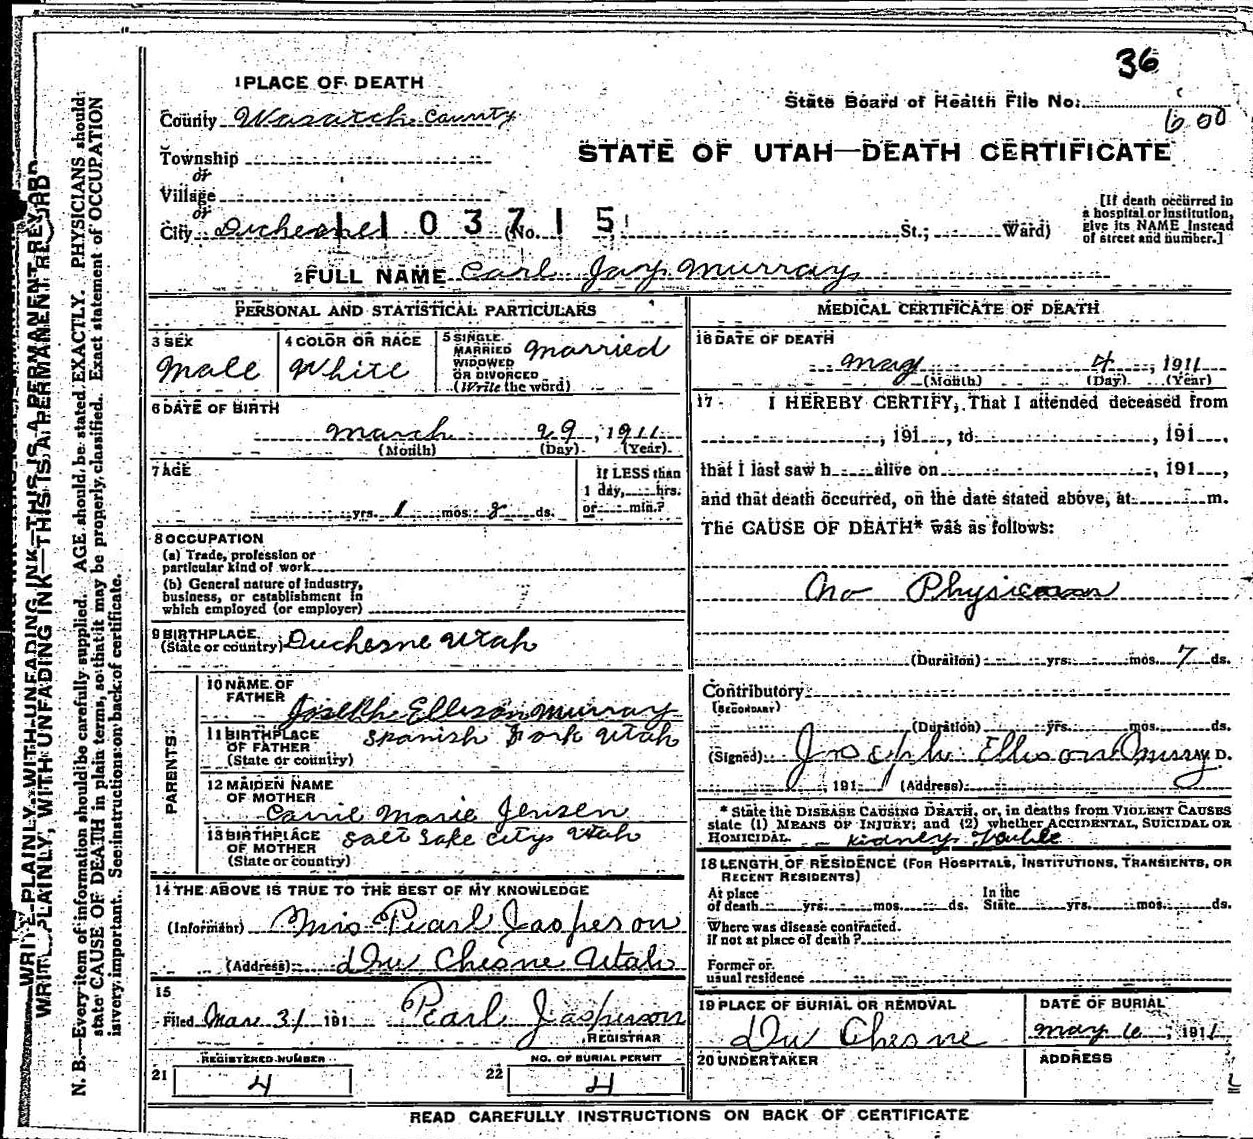 36
1 PLACE OF DEATH
State Board of Health File No.
600
County Wasatch County
STATE OF UTAH—DEATH CERTIFICATE
Township
or
Village
or
City Duchesne 1103715 (No. St.; Ward)
[If death occurred in
a hospital or institution,
give its NAME instead
of street and number.]
2 FULL NAME Carl Jay Murray
PERSONAL AND STATISTICAL PARTICULARS
3 SEX
Male
4 COLOR OR RACE
White
5 SINGLE
MARRIED
WIDOWED
OR DIVORCED
(Write the word)
Married
6 DATE OF BIRTH
March 29, 1911
(Month) (Day) (Year)
7 AGE
yrs. 1 mos. 8 ds.
If LESS than
1 day, hrs.
or min.?
8 OCCUPATION
(a) Trade, profession or
particular kind of work
(b) General nature of industry,
business, or establishment in
which employed (or employer)
9 BIRTHPLACE
(State or country) Duchesne Utah
PARENTS
10 NAME OF
FATHER
Joseph Ellison Murray
11 BIRTHPLACE
OF FATHER
(State or country)
Spanish Fork Utah
12 MAIDEN NAME
OF MOTHER
Carrie Marie Jensen
13 BIRTHPLACE
OF MOTHER
(State or country)
Salt Lake City Utah
14 THE ABOVE IS TRUE TO THE BEST OF MY KNOWLEDGE
(Informant) Mrs Pearl Jasperson
(Address) Du Chesne Utah
15
Filed Mar 31 191 Pearl Jasperson
REGISTRAR
21 REGISTERED NUMBER
4
22 NO. OF BURIAL PERMIT
4
MEDICAL CERTIFICATE OF DEATH
16 DATE OF DEATH
May 4, 1911
(Month) (Day) (Year)
17 I HEREBY CERTIFY, That I attended deceased from
, 191 , to , 191 ,
that I last saw h alive on , 191 ,
and that death occurred, on the date stated above, at m.
The CAUSE OF DEATH* was as follows:
No Physician
(Duration) yrs. mos. 7 ds.
Contributory
(SECONDARY)
(Duration) yrs. mos. ds.
(Signed) Joseph Ellison Murry M. D.
, 191 (Address)
* State the DISEASE CAUSING DEATH, or, in deaths from VIOLENT CAUSES
state (1) MEANS OF INJURY; and (2) whether ACCIDENTAL, SUICIDAL OR
HOMICIDAL. Kidney Trouble
18 LENGTH OF RESIDENCE (FOR HOSPITALS, INSTITUTIONS, TRANSIENTS, OR
RECENT RESIDENTS)
At place
of death yrs. mos. ds.
In the
State yrs. mos. ds.
Where was disease contracted.
if not at place of death?
Former or
usual residence
19 PLACE OF BURIAL OR REMOVAL
Du Chesne
DATE OF BURIAL
May 6, 1911
20 UNDERTAKER
ADDRESS
READ CAREFULLY INSTRUCTIONS ON BACK OF CERTIFICATE
WRITE PLAINLY, WITH UNFADING INK—THIS IS A PERMANENT RECORD
N. B.—Every item of information should be carefully supplied. AGE should be stated EXACTLY. PHYSICIANS should
state CAUSE OF DEATH in plain terms, so that it may be properly classified. Exact statement of OCCUPATION
is very important. See instructions on back of certificate.